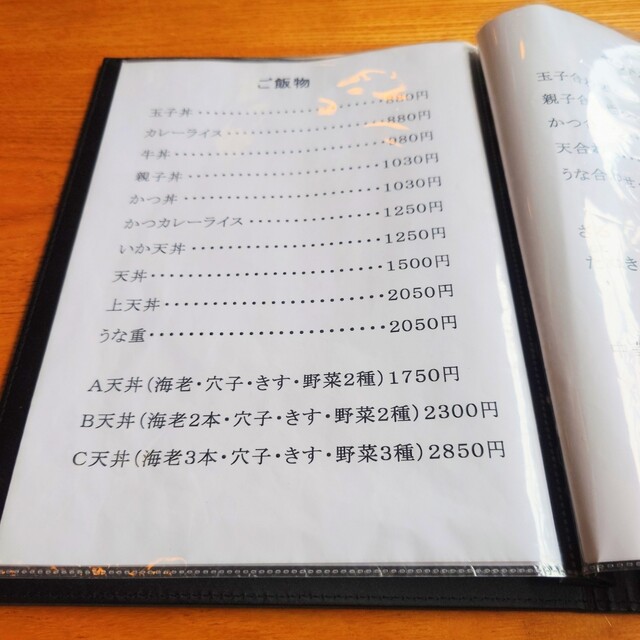 ご飯物
玉子丼・・・・・・・・・・・・・・・・・・・・・880円
カレーライス・・・・・・・・・・・・・・・・・880円
牛丼・・・・・・・・・・・・・・・・・・・・・・・980円
親子丼・・・・・・・・・・・・・・・・・・・・・1030円
かつ丼・・・・・・・・・・・・・・・・・・・・・1030円
かつカレーライス・・・・・・・・・・・・・1250円
いか天丼・・・・・・・・・・・・・・・・・・・1250円
天丼・・・・・・・・・・・・・・・・・・・・・・・1500円
上天丼・・・・・・・・・・・・・・・・・・・・・2050円
うな重・・・・・・・・・・・・・・・・・・・・・・2050円
A天丼(海老・穴子・きす・野菜2種)1750円
B天丼(海老2本・穴子・きす・野菜2種)2300円
C天丼(海老3本・穴子・きす・野菜3種)2850円
玉子合
親子合
かつ合
天合
うな合